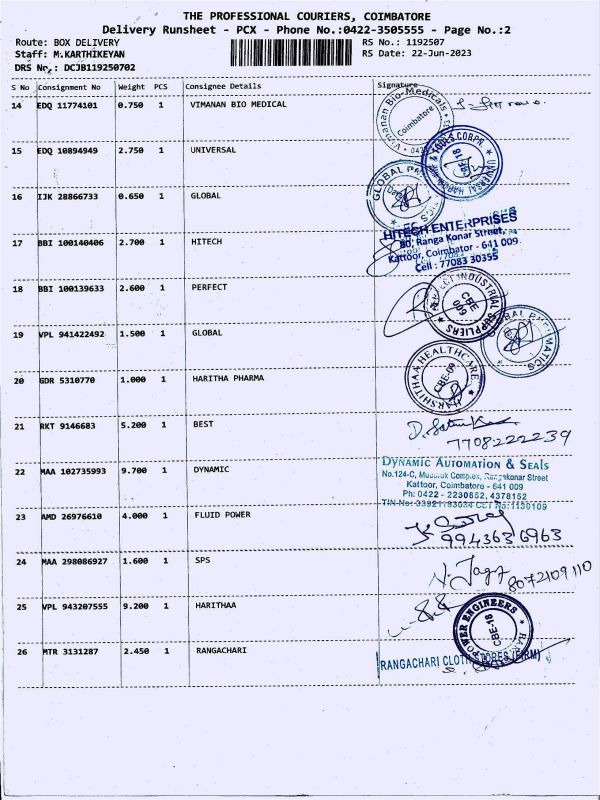 THE PROFESSIONAL COURIERS, COIMBATORE
Delivery Runsheet - PCX - Phone No.:0422-3505555 - Page No.:2
Route: BOX DELIVERY RS No.: 1192507
Staff: M.KARTHIKEYAN RS Date: 22-Jun-2023
DRS No.: DCJB119250702
S No Consignment No Weight PCS Consignee Details Signature
14 EDQ 11774101 0.750 1 VIMANAN BIO MEDICAL
Vimanan Bio-Medicals
Coimbatore
15 EDQ 10894949 2.750 1 UNIVERSAL
UNIVERSAL
16 IJK 28866733 0.650 1 GLOBAL
GLOBAL
17 BBI 100140406 2.700 1 HITECH
HITECH ENTERPRISES
80, Ranga Konar Street,
Kattoor, Coimbator - 641 009.
Cell : 77083 30355
18 BBI 100139633 2.600 1 PERFECT
PERFECT INDUSTRIAL SUPPLIERS
CBE 009
19 VPL 941422492 1.500 1 GLOBAL
GLOBAL PNEUMATICS
20 GDR 5310770 1.000 1 HARITHA PHARMA
HARSHITHAA HEALTHCARE
21 RKT 9146683 5.200 1 BEST
7708222239
22 MAA 102735993 9.700 1 DYNAMIC
DYNAMIC AUTOMATION & SEALS
No.124-C, Complex, Rangakonar Street
Kattoor, Coimbatore - 641 009
Ph: 0422 - 2230852, 4378152
23 AMD 26976610 4.000 1 FLUID POWER
9943636963
24 MAA 298086927 1.600 1 SPS
8072109110
25 VPL 943207555 9.200 1 HARITHAA
POWER ENGINEERS
CBE-18
26 MTR 3131287 2.450 1 RANGACHARI
RANGACHARI CLOTH STORES (FIRM)